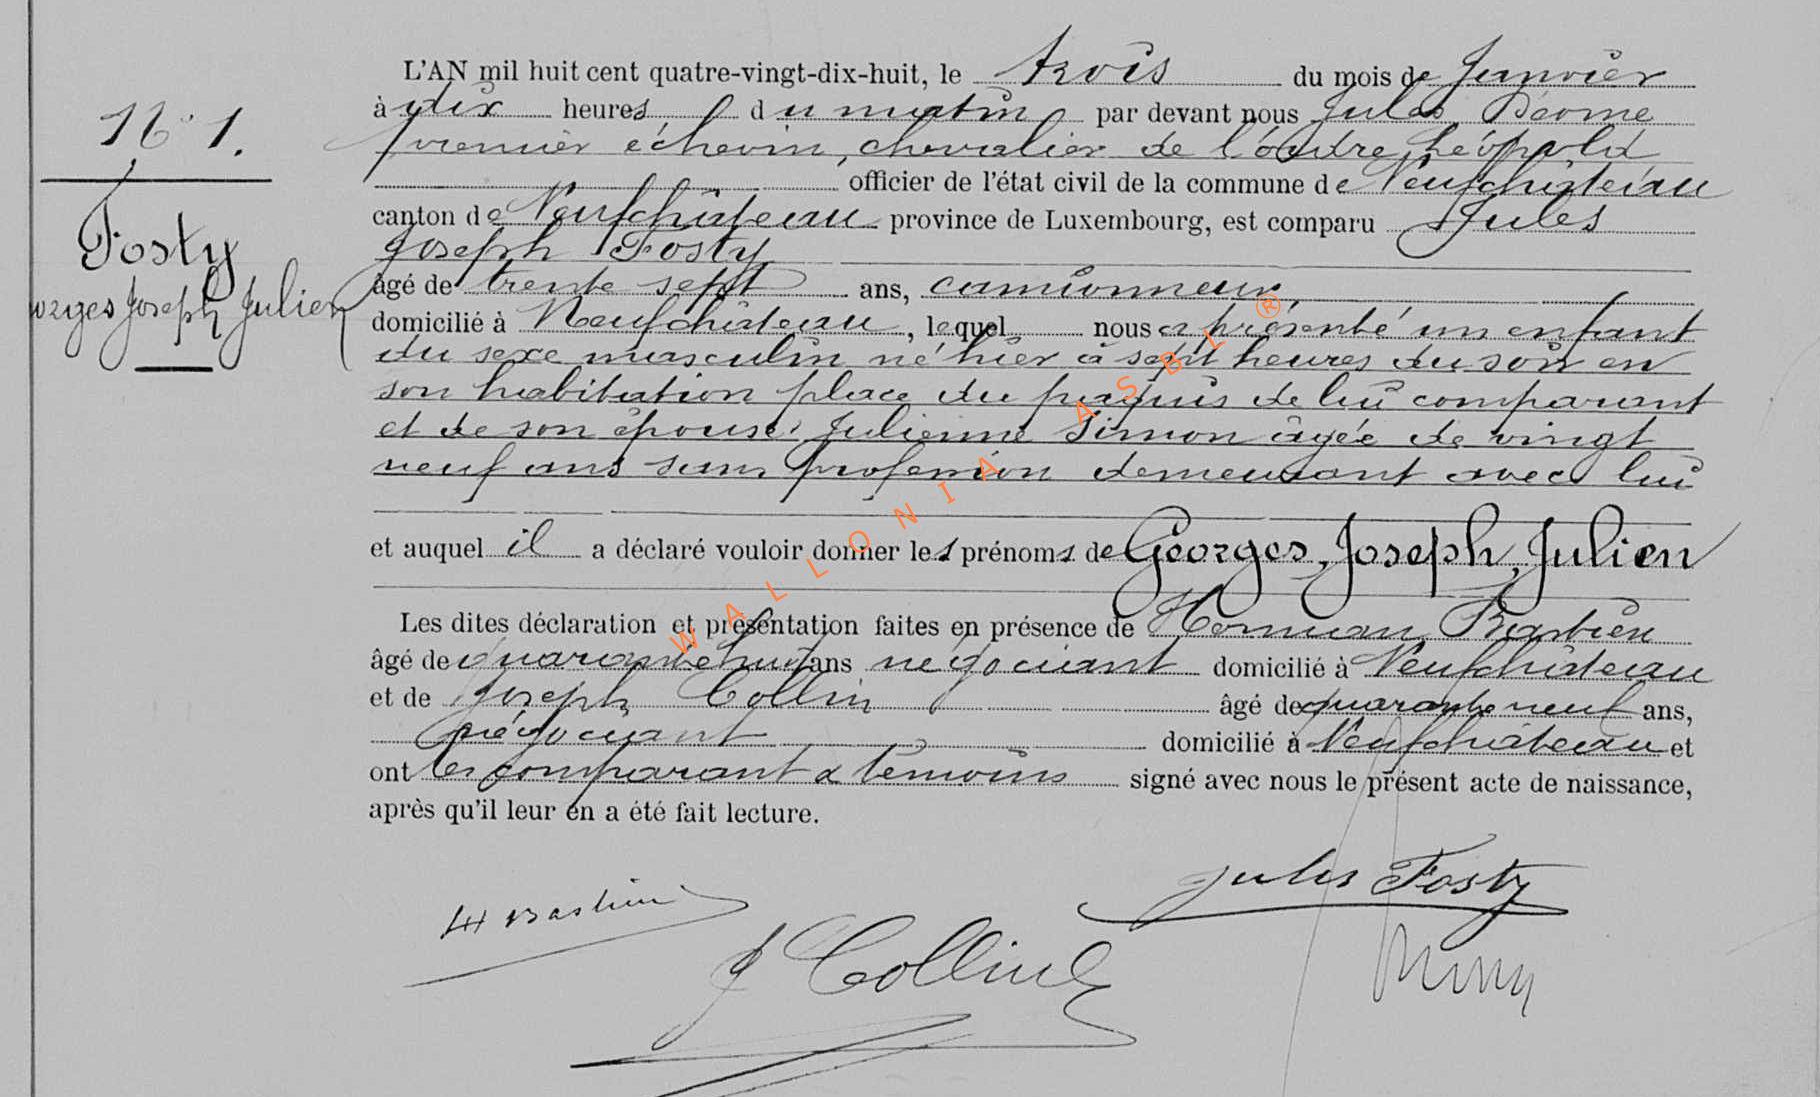 N° 1.
Fosty
orges Joseph Julien
L'AN mil huit cent quatre-vingt-dix-huit, le trois du mois de Janvier
à dix heures du matin par devant nous Jules Dérome
premier échevin, chevalier de l'ordre Léopold
officier de l'état civil de la commune de Neufchâteau
canton de Neufchâteau province de Luxembourg, est comparu Jules
Joseph Fosty
âgé de trente sept ans, camionneur,
domicilié à Neufchâteau, lequel nous a présenté un enfant
du sexe masculin né hier à sept heures du soir en
son habitation place du paquis de lui comparant
et de son épouse Julienne Simon âgée de vingt
neuf ans sans profession demeurant avec lui
et auquel il a déclaré vouloir donner les prénoms de Georges, Joseph, Julien
Les dites déclaration et présentation faites en présence de Herman Bastien
âgé de quarante huit ans négociant domicilié à Neufchâteau
et de Joseph Collin âgé de quarante neuf ans,
négociant domicilié à Neufchâteau et
ont les comparant & témoins signé avec nous le présent acte de naissance,
après qu'il leur en a été fait lecture.
Jules Fosty
H Bastien
J Collin
WALLONIA ASBL ®